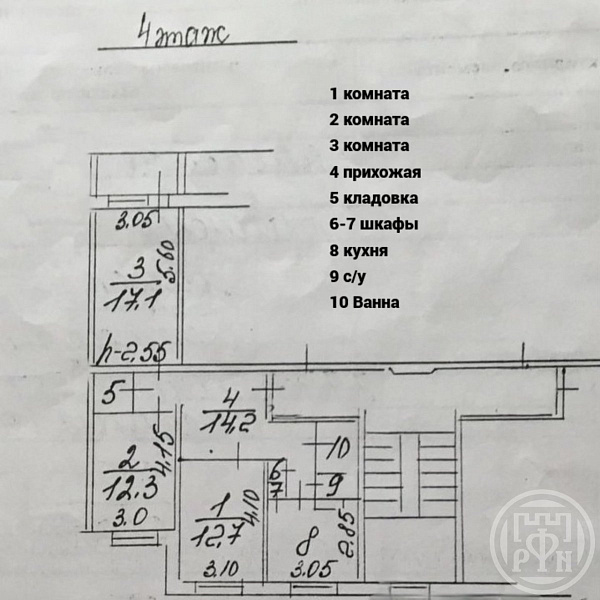 4 этаж
1 комната
2 комната
3 комната
4 прихожая
5 кладовка
6-7 шкафы
8 кухня
9 с/у
10 Ванна
3.05
5.60
3
17,1
h-2,55
5
4
14,2
2
12,3
4,15
3.0
1
12,7
4,10
3.10
6
7
10
9
8
2,85
3.05
РФН